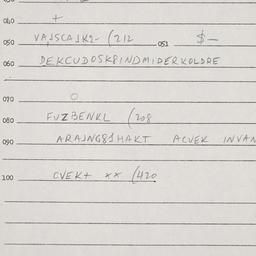 040 +
050 VAJSCAJKI- (212 051 $-
060 DEKCUDOSK8INDMIDERKOLDRE
070 O
080 FUZBENKL (208
090 ARAJNG81HAKT ACVEK INVAN
100 CVEK+ xx (420